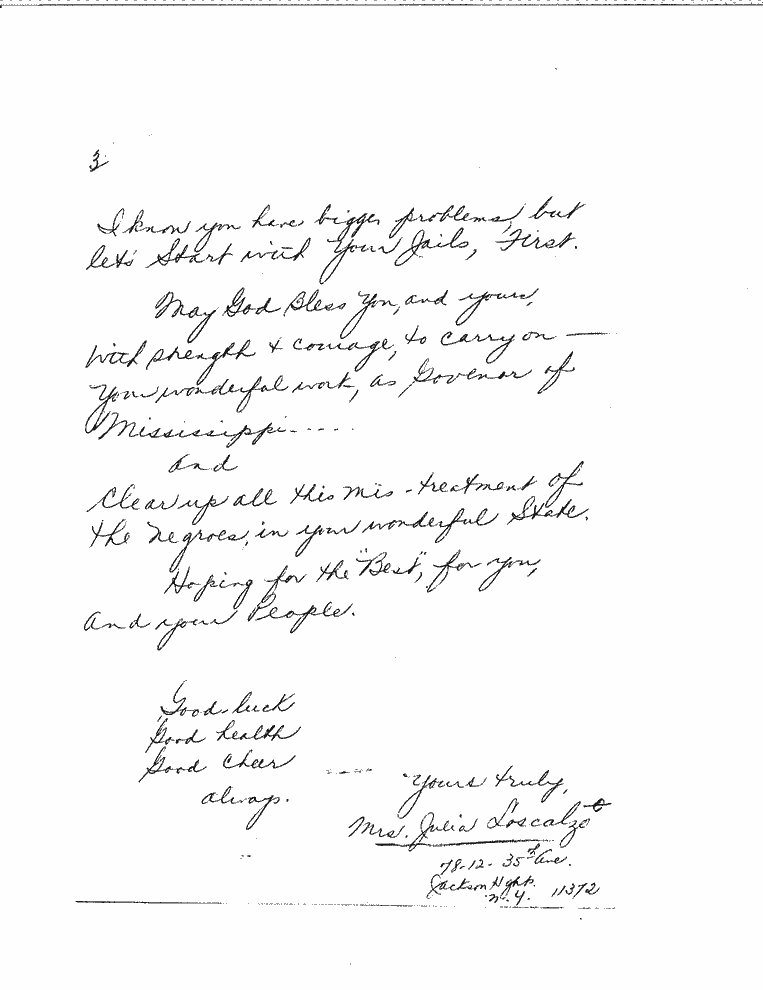 3.
I know you have bigger problems, but
let's Start with Your Jails, First.
May God Bless You, and yours,
With strength & courage, to carry on —
Your wonderful work, as Govenor of
Mississippi-----
and
Clear up all this mis-treatment of
the negroes, in your wonderful State.
Hoping for the "Best", for you,
and your People.
Good-luck
Good health
Good Cheer
always.
Yours truly,
Mrs. Julia Loscalzo
78-12-35th Ave.
Jackson Hghts.
N.Y. 11372